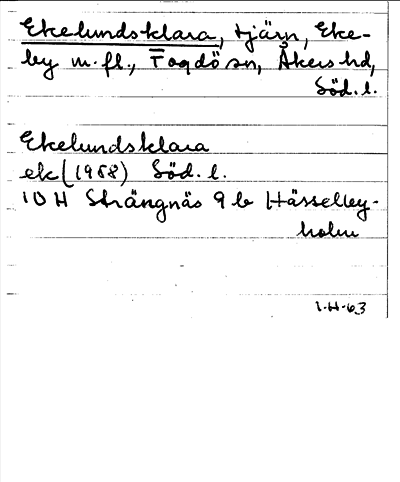 Ekelundsklara, tjärn, Eke-
by m.fl., Fogdö sn, Åkers hd,
Söd. l.
Ekelundsklara
ek (1958) Söd. l.
10 H Strängnäs 9 b Hässelby-
holm
I-H-63